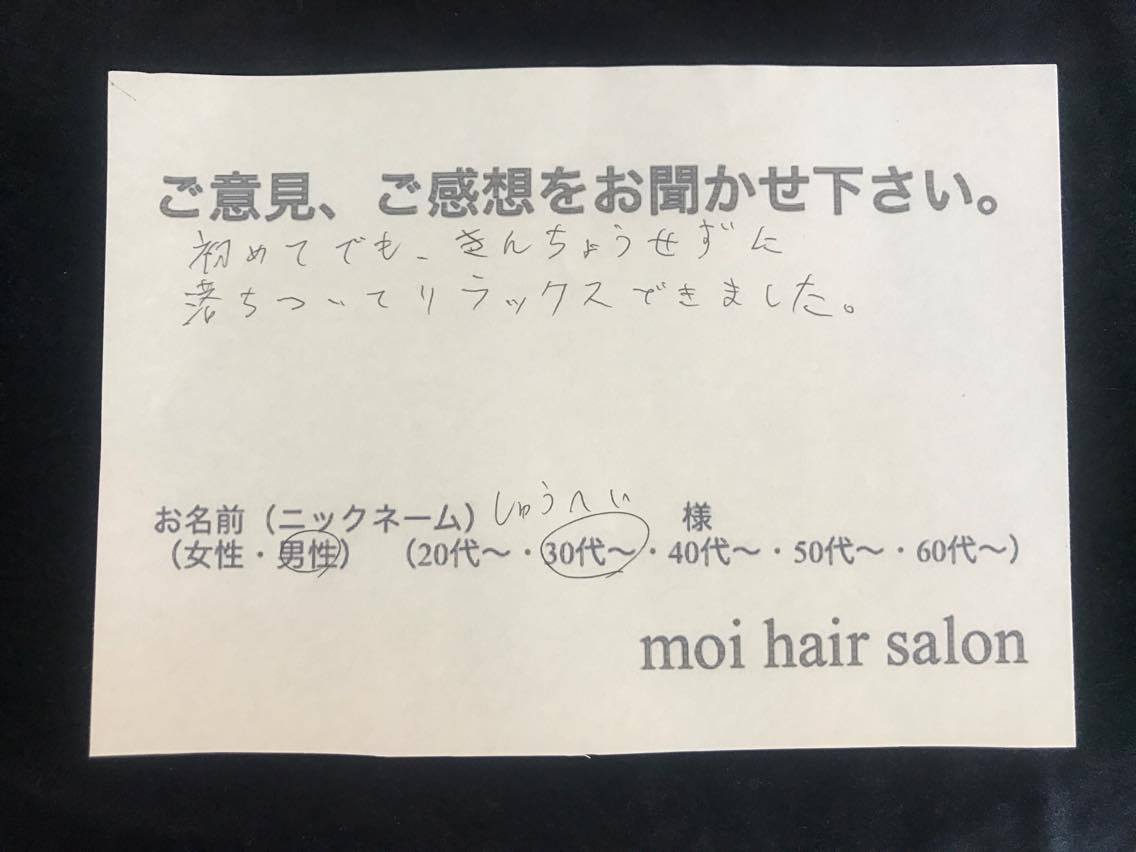 ご意見、ご感想をお聞かせ下さい。
初めてでも、きんちょうせずに
落ちついてリラックスできました。
お名前（ニックネーム）しゅうへい 様
（女性・男性）（20代～・30代～・40代～・50代～・60代～）
moi hair salon